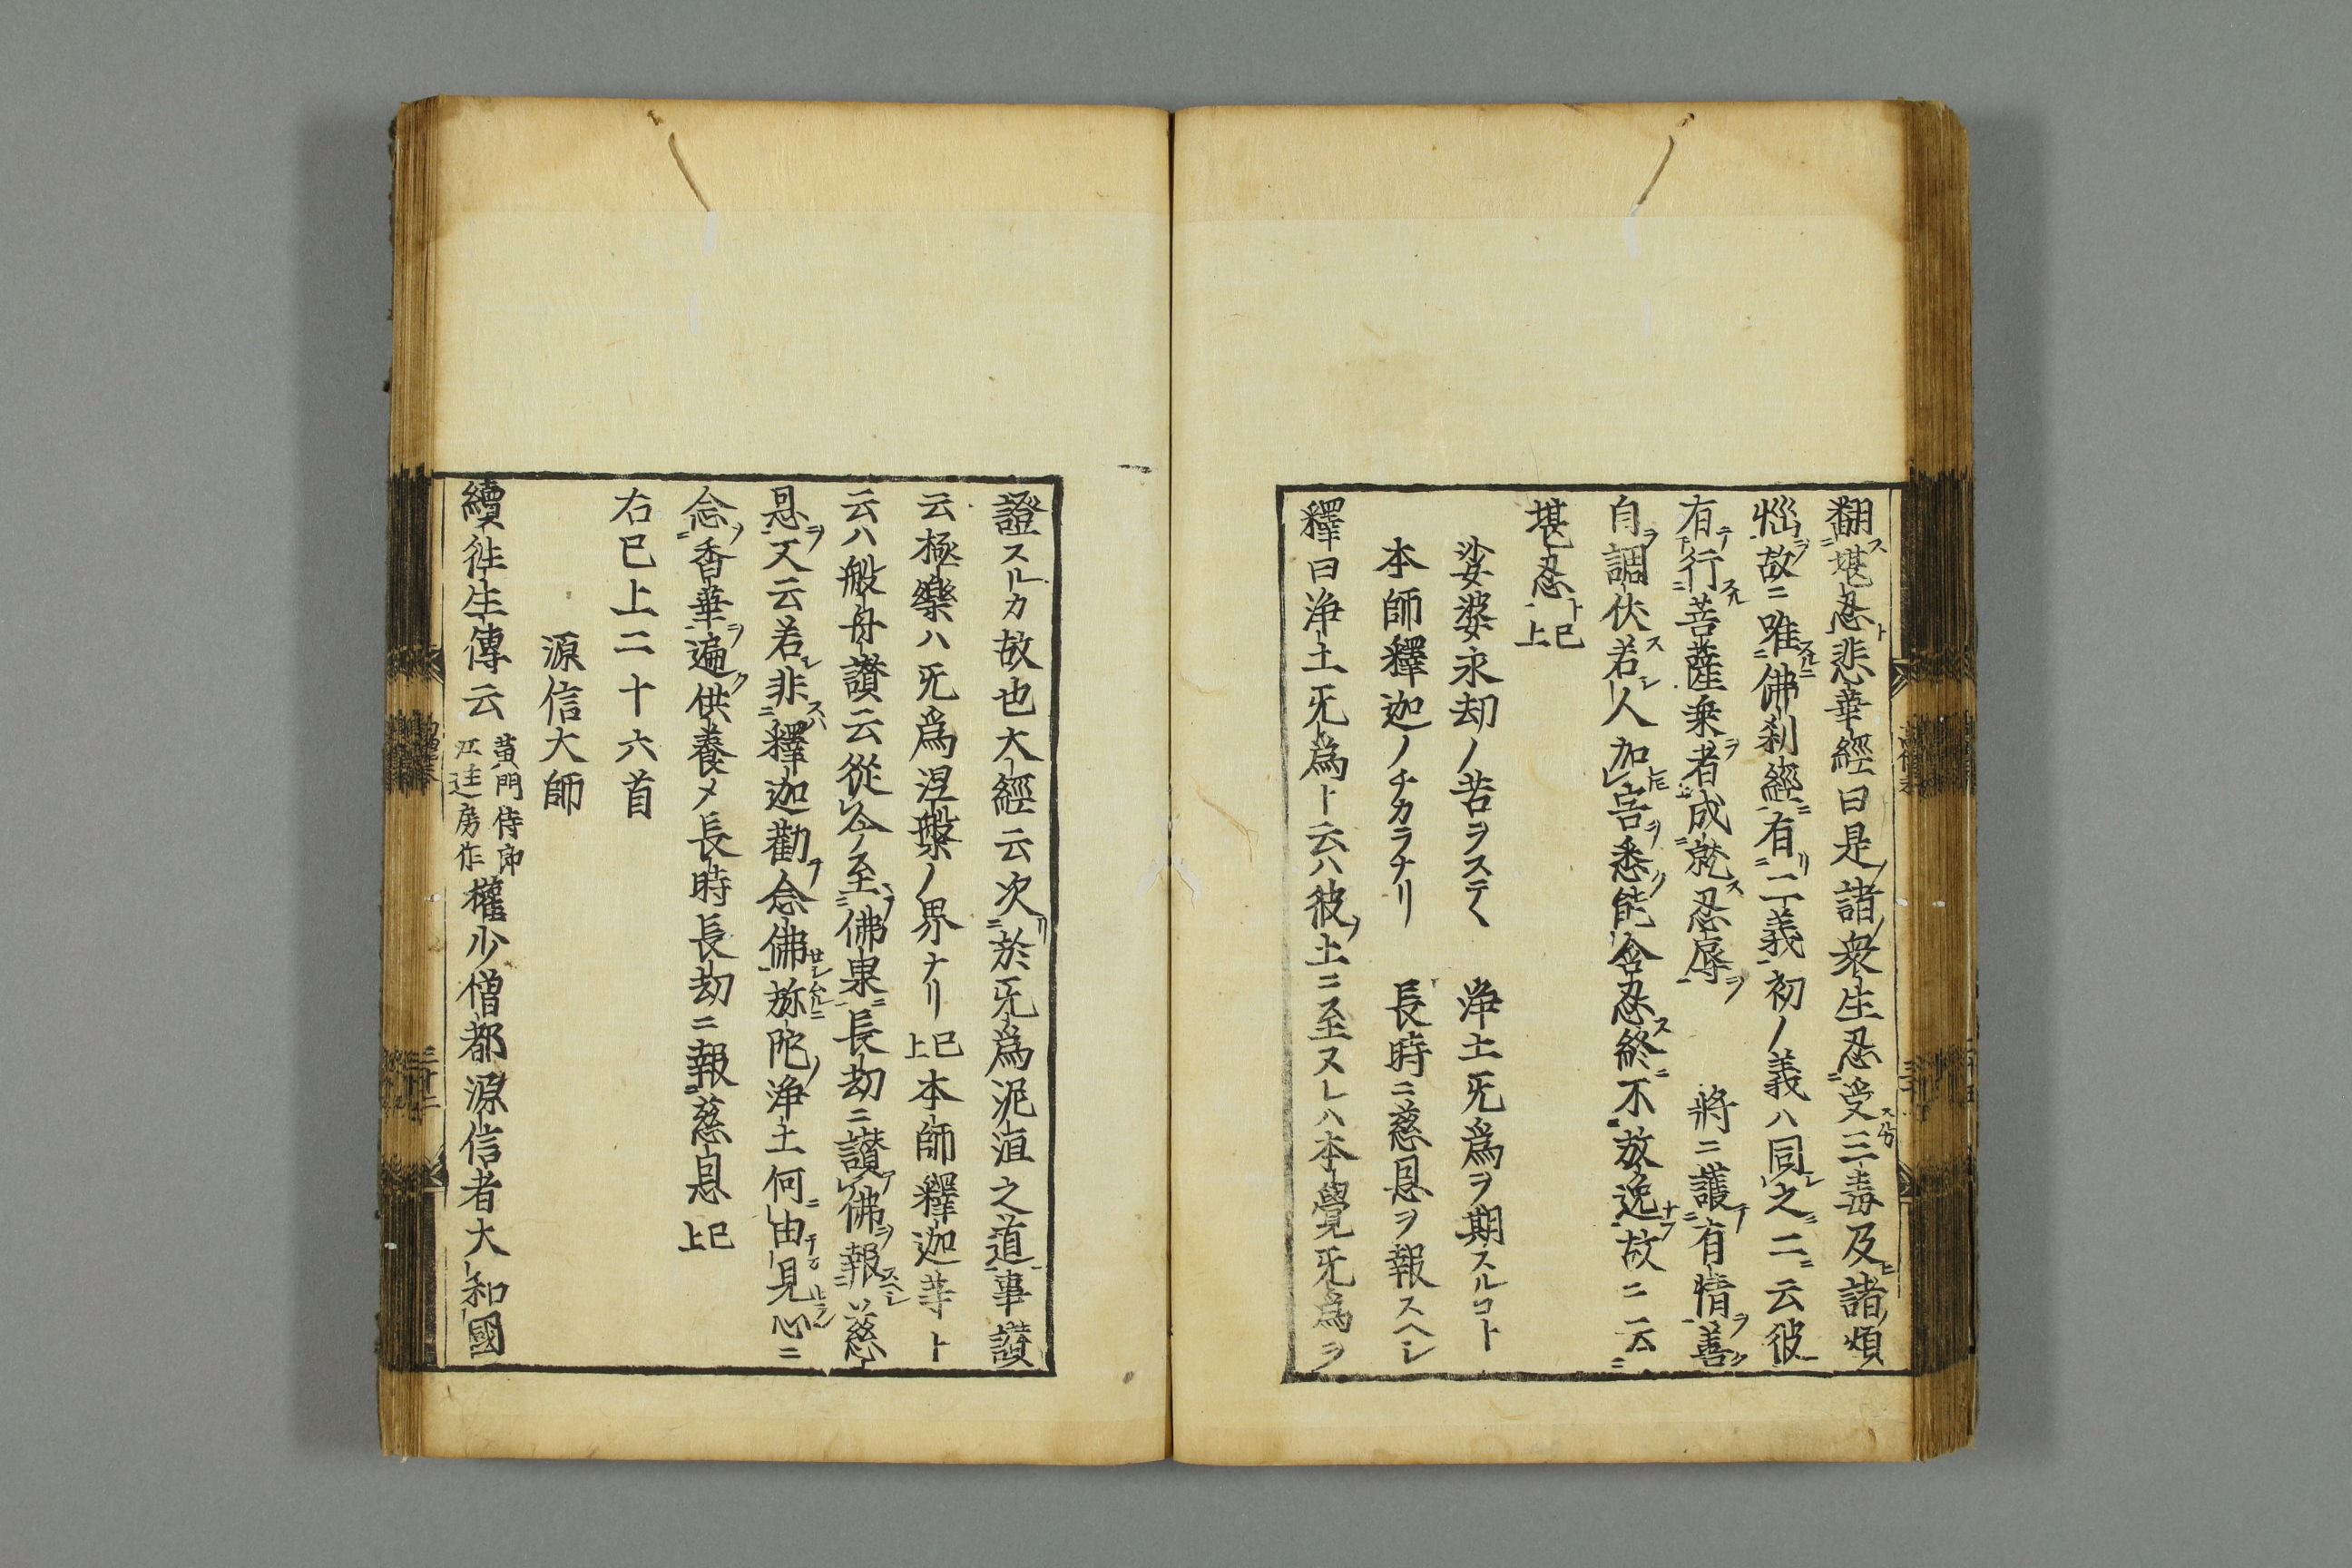 翻堪忍悲華經曰是諸衆生忍受三毒及諸煩
惱故ニ唯佛刹經有二義初ノ義ハ同之二云彼
有行菩薩乗者成就忍辱 將ニ護有情善
自調伏若人加害悉能含忍終不放逸故ニ云
堪忍已上
娑婆永劫ノ苦ヲステヽ 浄土无爲ヲ期スルコト
本師釋迦ノチカラナリ 長時ニ慈恩ヲ報スヘシ
釋曰浄土无爲ト云ハ彼土ニ至ヌレハ本覺无爲ヲ
證スルカ故也大經云次於无爲泥洹之道事讃
云極樂ハ无爲涅槃ノ界ナリ已上本師釋迦等ト
云ハ般舟讃云從今至佛果長劫ニ讃佛報慈
恩又云若非釋迦勸念佛弥陀浄土何由見心ニ
念香華遍供養メ長時長劫ニ報慈恩已上
右已上二十六首
源信大師
續往生傳云黄門侍郎江匡房作權少僧都源信者大和國